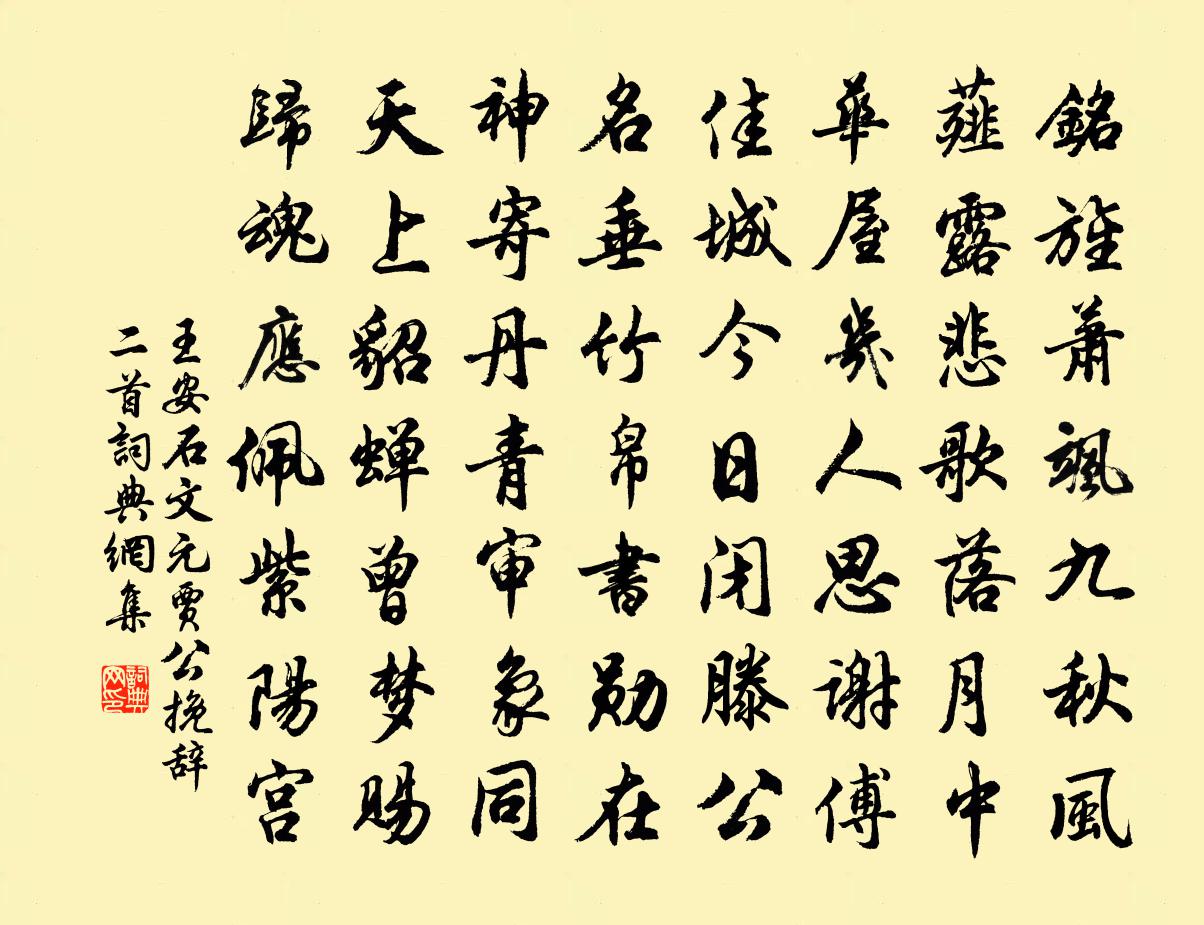 銘旌蕭颯九秋風
薤露悲歌落月中
華屋幾人思谢傅
佳城今日闭滕公
名垂竹帛書勛在
神寄丹青审象同
天上貂蝉曾梦賜
歸魂應佩紫陽宫
王安石文元賈公挽辞
二首詞典網集
詞典网印